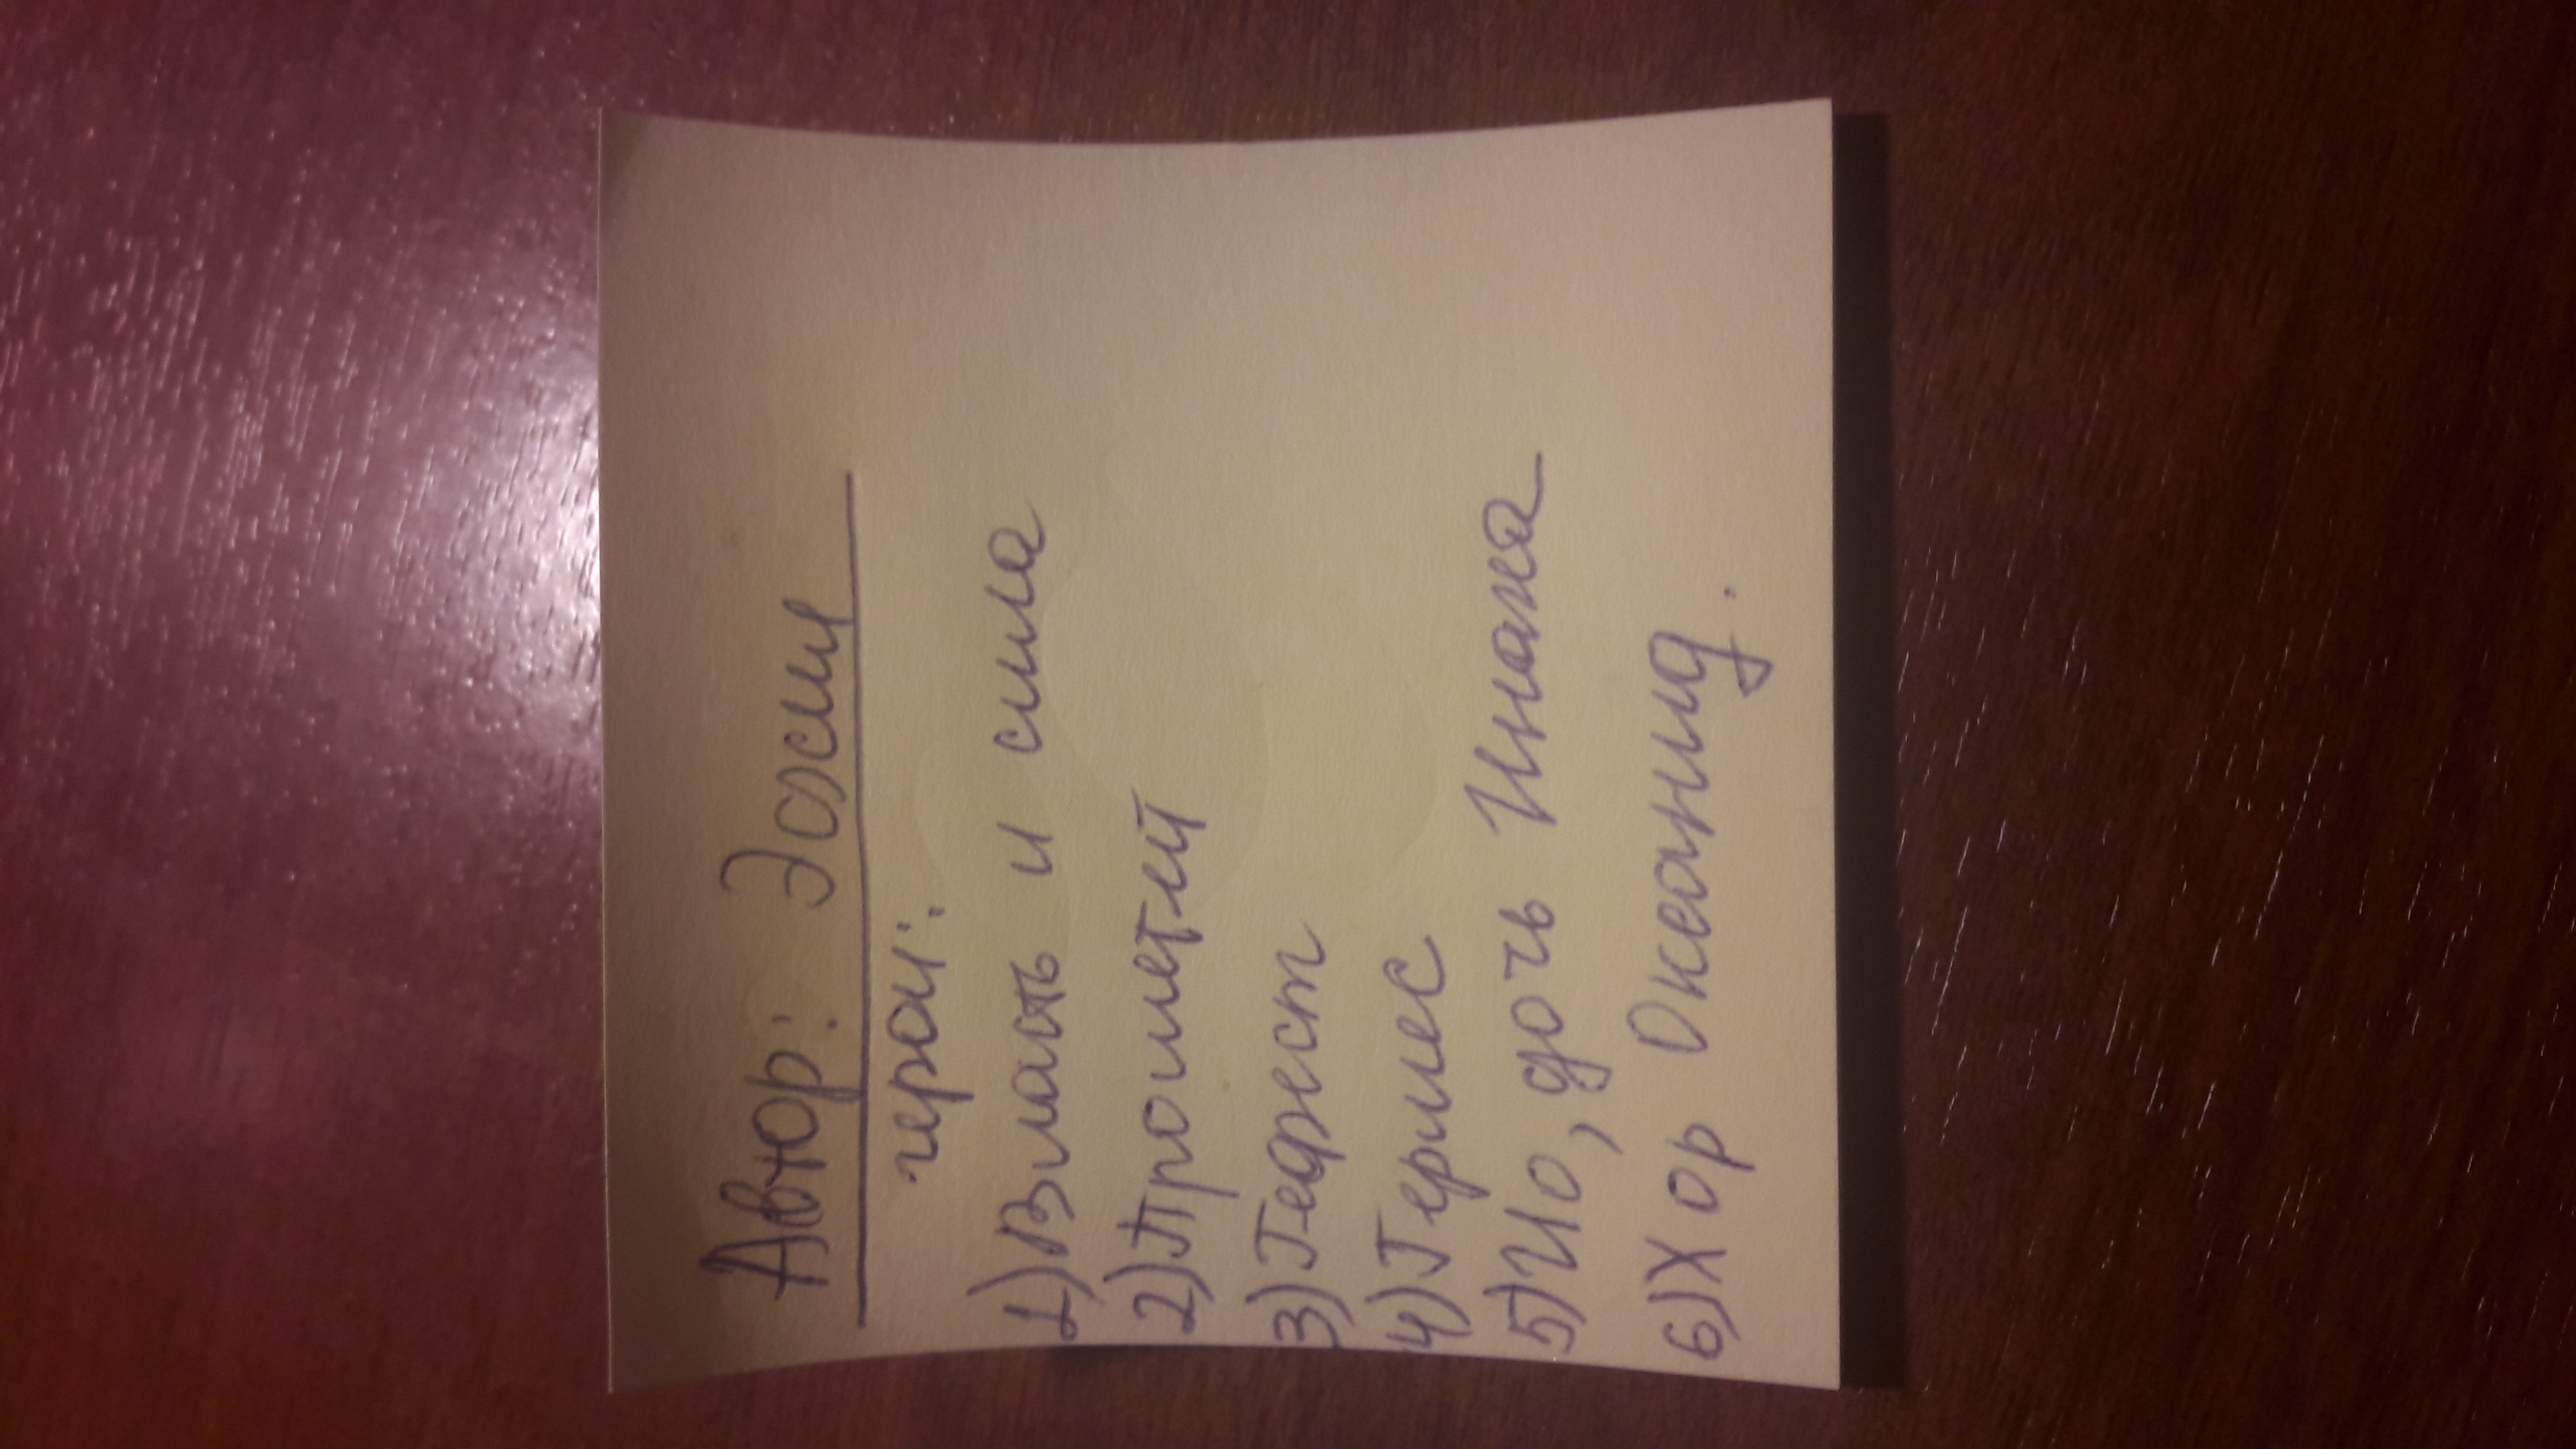 Автор: Эсхил
герои:
1) Власть и сила
2) Прометей
3) Гефест
4) Гермес
5) Ио, дочь Инаха
6) Хор Океанид.